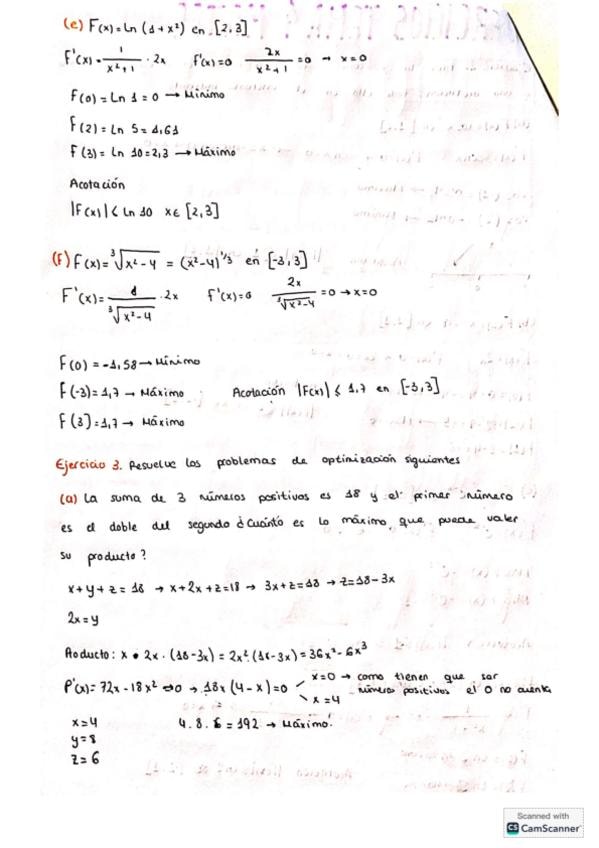 (e) F(x) = Ln (1+x²) en [2,3]
F'(x) = 1/(x²+1) · 2x   F'(x)=0   2x/(x²+1) = 0 → x=0
F(0) = Ln 1 = 0 → Mínimo
F(2) = Ln 5 = 1,61
F(3) = Ln 10 = 2,3 → Máximo
Acotación
|F(x)| ≤ Ln 10   x ∈ [2,3]
(F) F(x) = ∛(x²-4) = (x²-4)^1/3 en [-3,3]
F'(x) = 1/∛(x²-4) · 2x   F'(x)=0   2x/∛(x²-4) = 0 → x=0
F(0) = -1,58 → Mínimo
F(-3) = 1,7 → Máximo   Acotación |F(x)| ≤ 1,7 en [-3,3]
F(3) = 1,7 → Máximo
Ejercicio 3. Resuelve los problemas de optimización siguientes
(a) La suma de 3 números positivos es 18 y el primer número
es el doble del segundo ¿Cuánto es lo máximo que puede valer
su producto?
x+y+z = 18 → x+2x+z=18 → 3x+z=18 → z=18-3x
2x=y
Producto: x · 2x · (18-3x) = 2x² · (18-3x) = 36x² - 6x³
P'(x) = 72x - 18x² → 0 → 18x (4-x) = 0   x=0 → como tienen que ser
x=4   números positivos el 0 no cuenta
x=4   4 · 8 · 6 = 192 → Máximo!
y=8
z=6
Scanned with
CS CamScanner